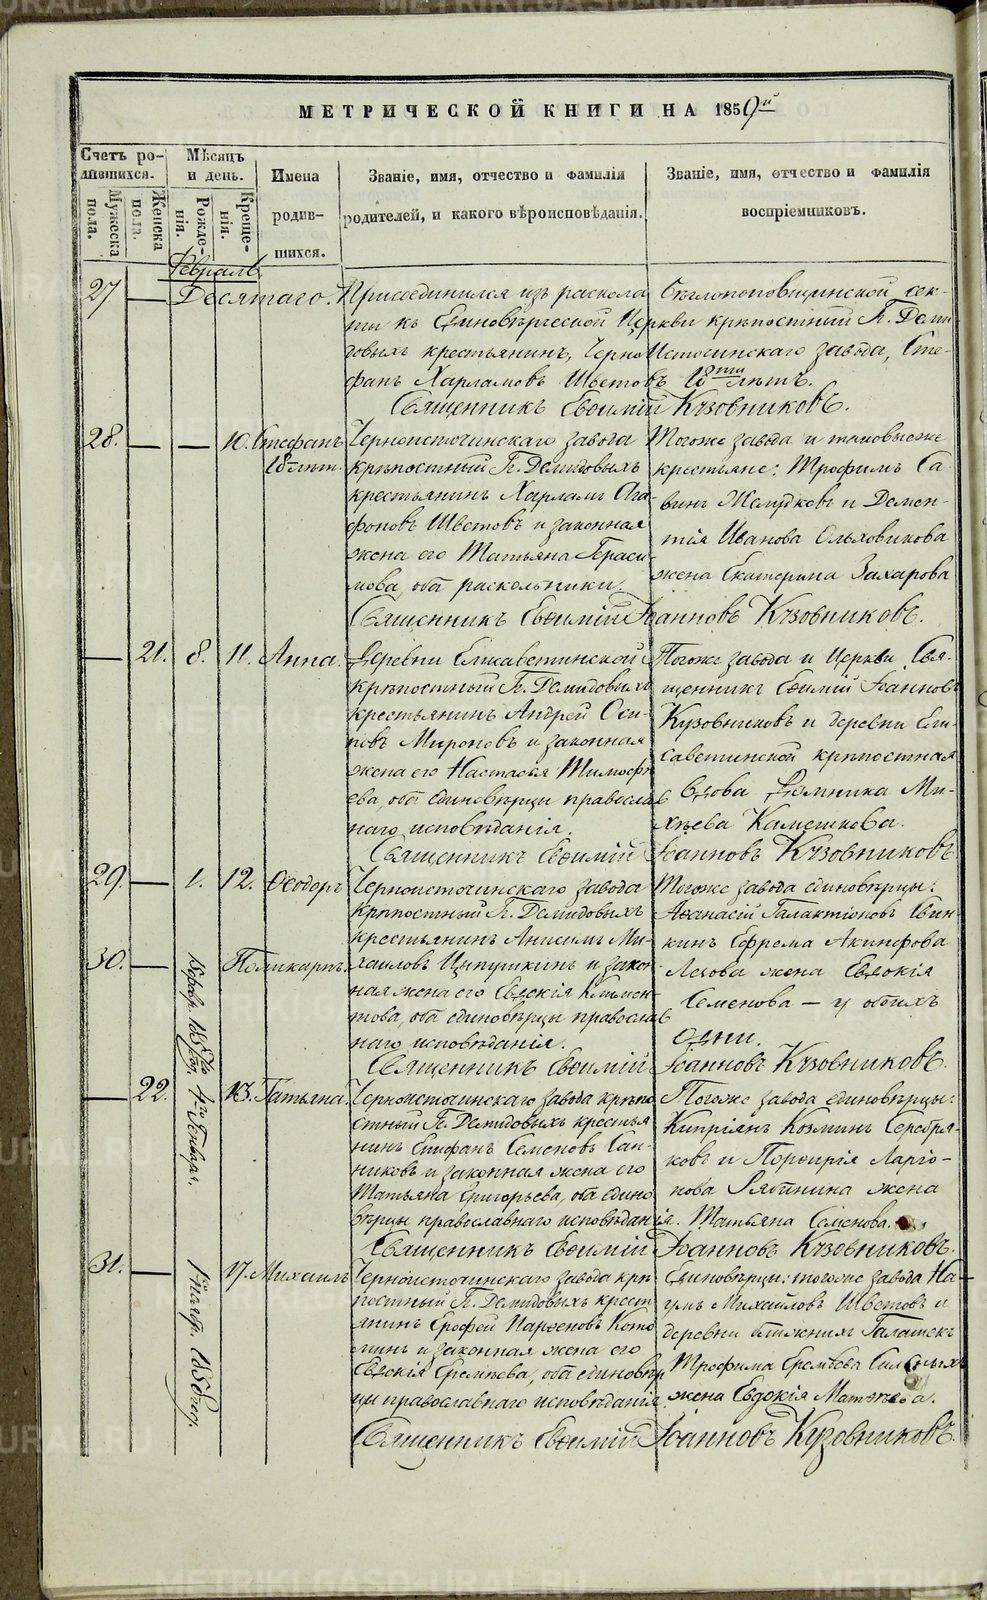 МЕТРИЧЕСКОЙ КНИГИ НА 1859й
Счетъ ро-
дившихся.
Мужеска пола.
Женска пола.
Мѣсяцъ
и день.
Рожде-
нія.
Креще-
нія.
Имена
родив-
шихся.
Званіе, имя, отчество и фамилія
родителей, и какого вѣроисповѣданія.
Званіе, имя, отчество и фамилія
воспріемниковъ.
Февраль
27 — Десятаго. Присоединился изъ раскола Бѣглопоповщинской сек-
ты къ Единовѣрческой Церкви крѣпостный Г. Деми
довыхъ крестьянинъ, Черноисточинскаго завода, Сте-
фанъ Харламовъ Шветовъ 18ти лѣтъ.
Священникъ Евѳимій Кузовниковъ.
28. — — 10. Стефанъ
18 лѣт.
Черноисточинскаго завода
крѣпостный Г. Демидовыхъ
крестьянинъ Харламъ Ага-
фоновъ Шветовъ и законная
жена его Татьяна Гераси-
мова, оба раскольники.
Тогоже завода и таковыеже
крестьяне: Трофимъ Са-
винъ и Демен-
тія Иванова Ольховикова
жена Екатерина Захарова
Священникъ Евѳимій Іоанновъ Кузовниковъ.
— 21. 8. 11. Анна.
Деревни Елисаветинской
крѣпостный Г. Демидовыхъ
крестьянинъ Андрей Оси-
повъ Мироновъ и законная
жена его Настасья Тимофе
ева, оба единовѣрцы православ
наго исповѣданія.
Тогоже завода и Церкви Свя-
щенникъ Евѳимій Іоанновъ
Кузовниковъ и деревни Ели-
саветинской крѣпостная
вдова Домника Ми-
хѣева Камешкова.
Священникъ Евѳимій Іоанновъ Кузовниковъ
29. — 1. 12. Ѳеодоръ
30. — Поликарпъ
Черноисточинскаго завода
крѣпостный Г. Демидовыхъ
крестьянинъ Анисимъ Ми-
хаиловъ Цыпушкинъ и закон
ная жена его Евдокія Климен-
това, оба единовѣрцы православ
наго исповѣданія.
Тогоже завода единовѣрцы:
Аѳанасій Галактіоновъ Свин-
кинъ Ефрема Акинфова
жена Евдокія
Семенова — у обоихъ
одни.
Священникъ Евѳимій Іоанновъ Кузовниковъ.
— 22. 4го Генваря. 13. Татьяна.
Черноисточинскаго завода крѣпо
стный Г. Демидовыхъ крестья
нинъ Епифанъ Семеновъ Сан-
никовъ и законная жена его
Татьяна Григорьева, оба едино
вѣрцы православнаго исповѣданія.
Тогоже завода единовѣрцы:
Кипріянъ Козминъ Серебря-
ковъ и Порфирія Ларіо-
нова Рябинина жена
Татьяна Семенова.
Священникъ Евѳимій Іоанновъ Кузовниковъ.
31. — 17. Михаилъ
Черноисточинскаго завода крѣ
постный Г. Демидовыхъ крест
янинъ Ерофей Парѳеновъ
и законная жена его
Евдокія Еремѣева, оба единовѣр
цы православнаго исповѣданія
Единовѣрцы: тогоже завода На-
умъ Михайловъ Шветовъ и
деревни ближнихъ Галашекъ
Трофима Еремѣева
жена Евдокія Матвѣева.
Священникъ Евѳимій Іоанновъ Кузовниковъ.
METRIKI.GASO-URAL.RU